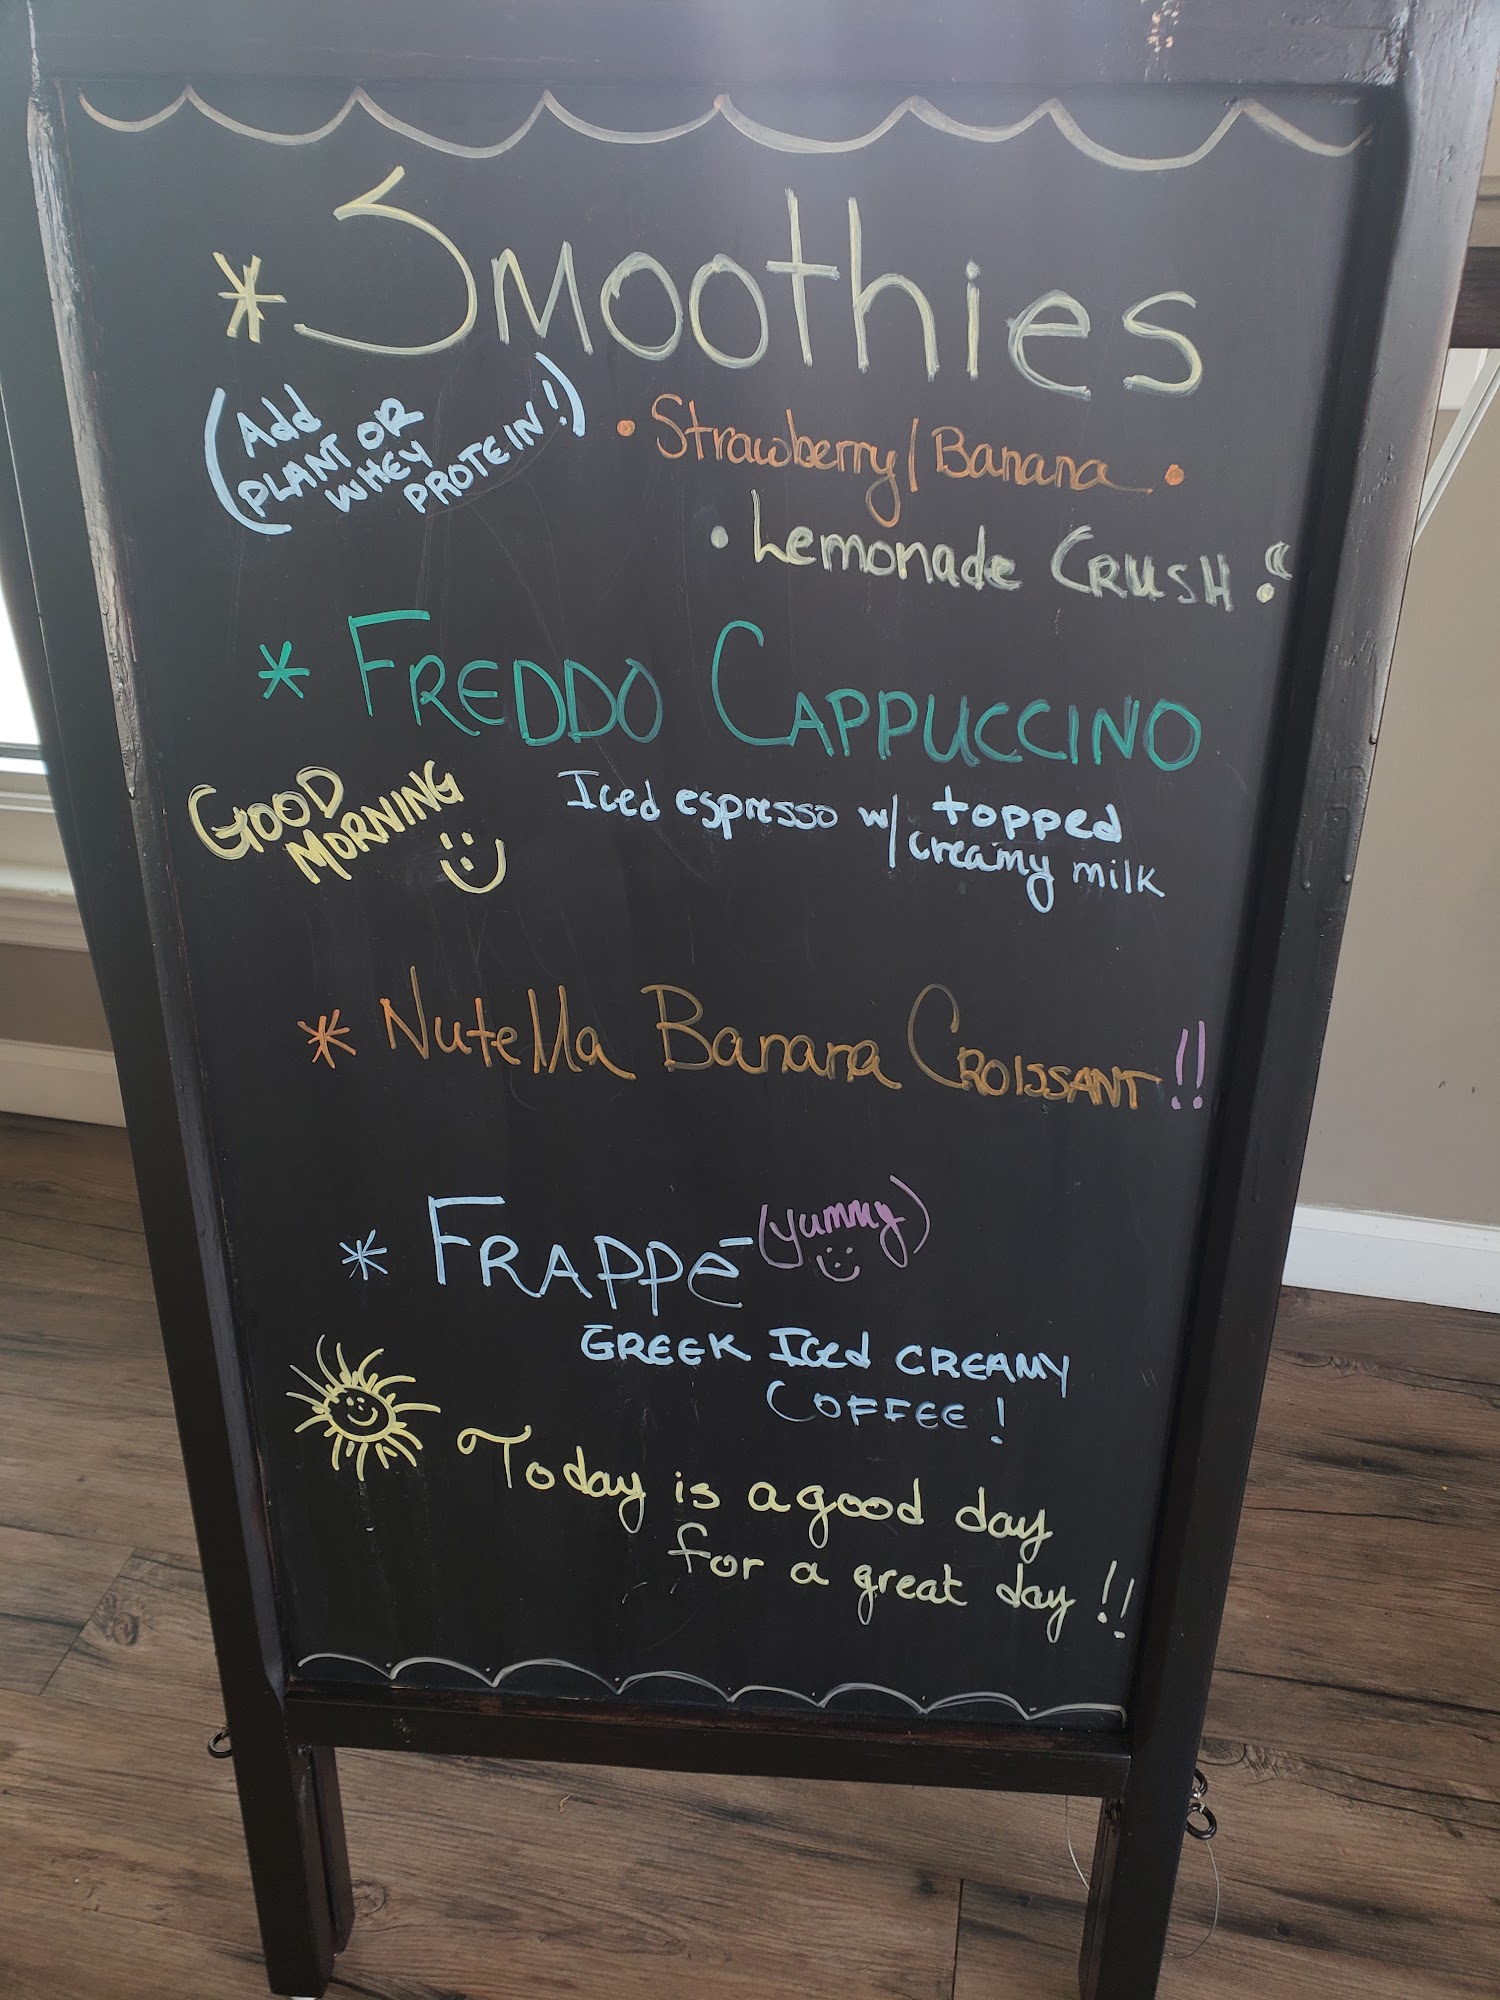 * Smoothies
(Add
PLANT OR
WHEY
PROTEIN!)
• Strawberry/Banana •
• Lemonade CRUSH •
* FREDDO CAPPUCCINO
GOOD
MORNING
Iced espresso w/ topped
creamy milk
* Nutella Banana CROISSANT!!
* FRAPPē (yummy)
GREEK Iced CREAMY
COFFEE!
Today is a good day
for a great day!!